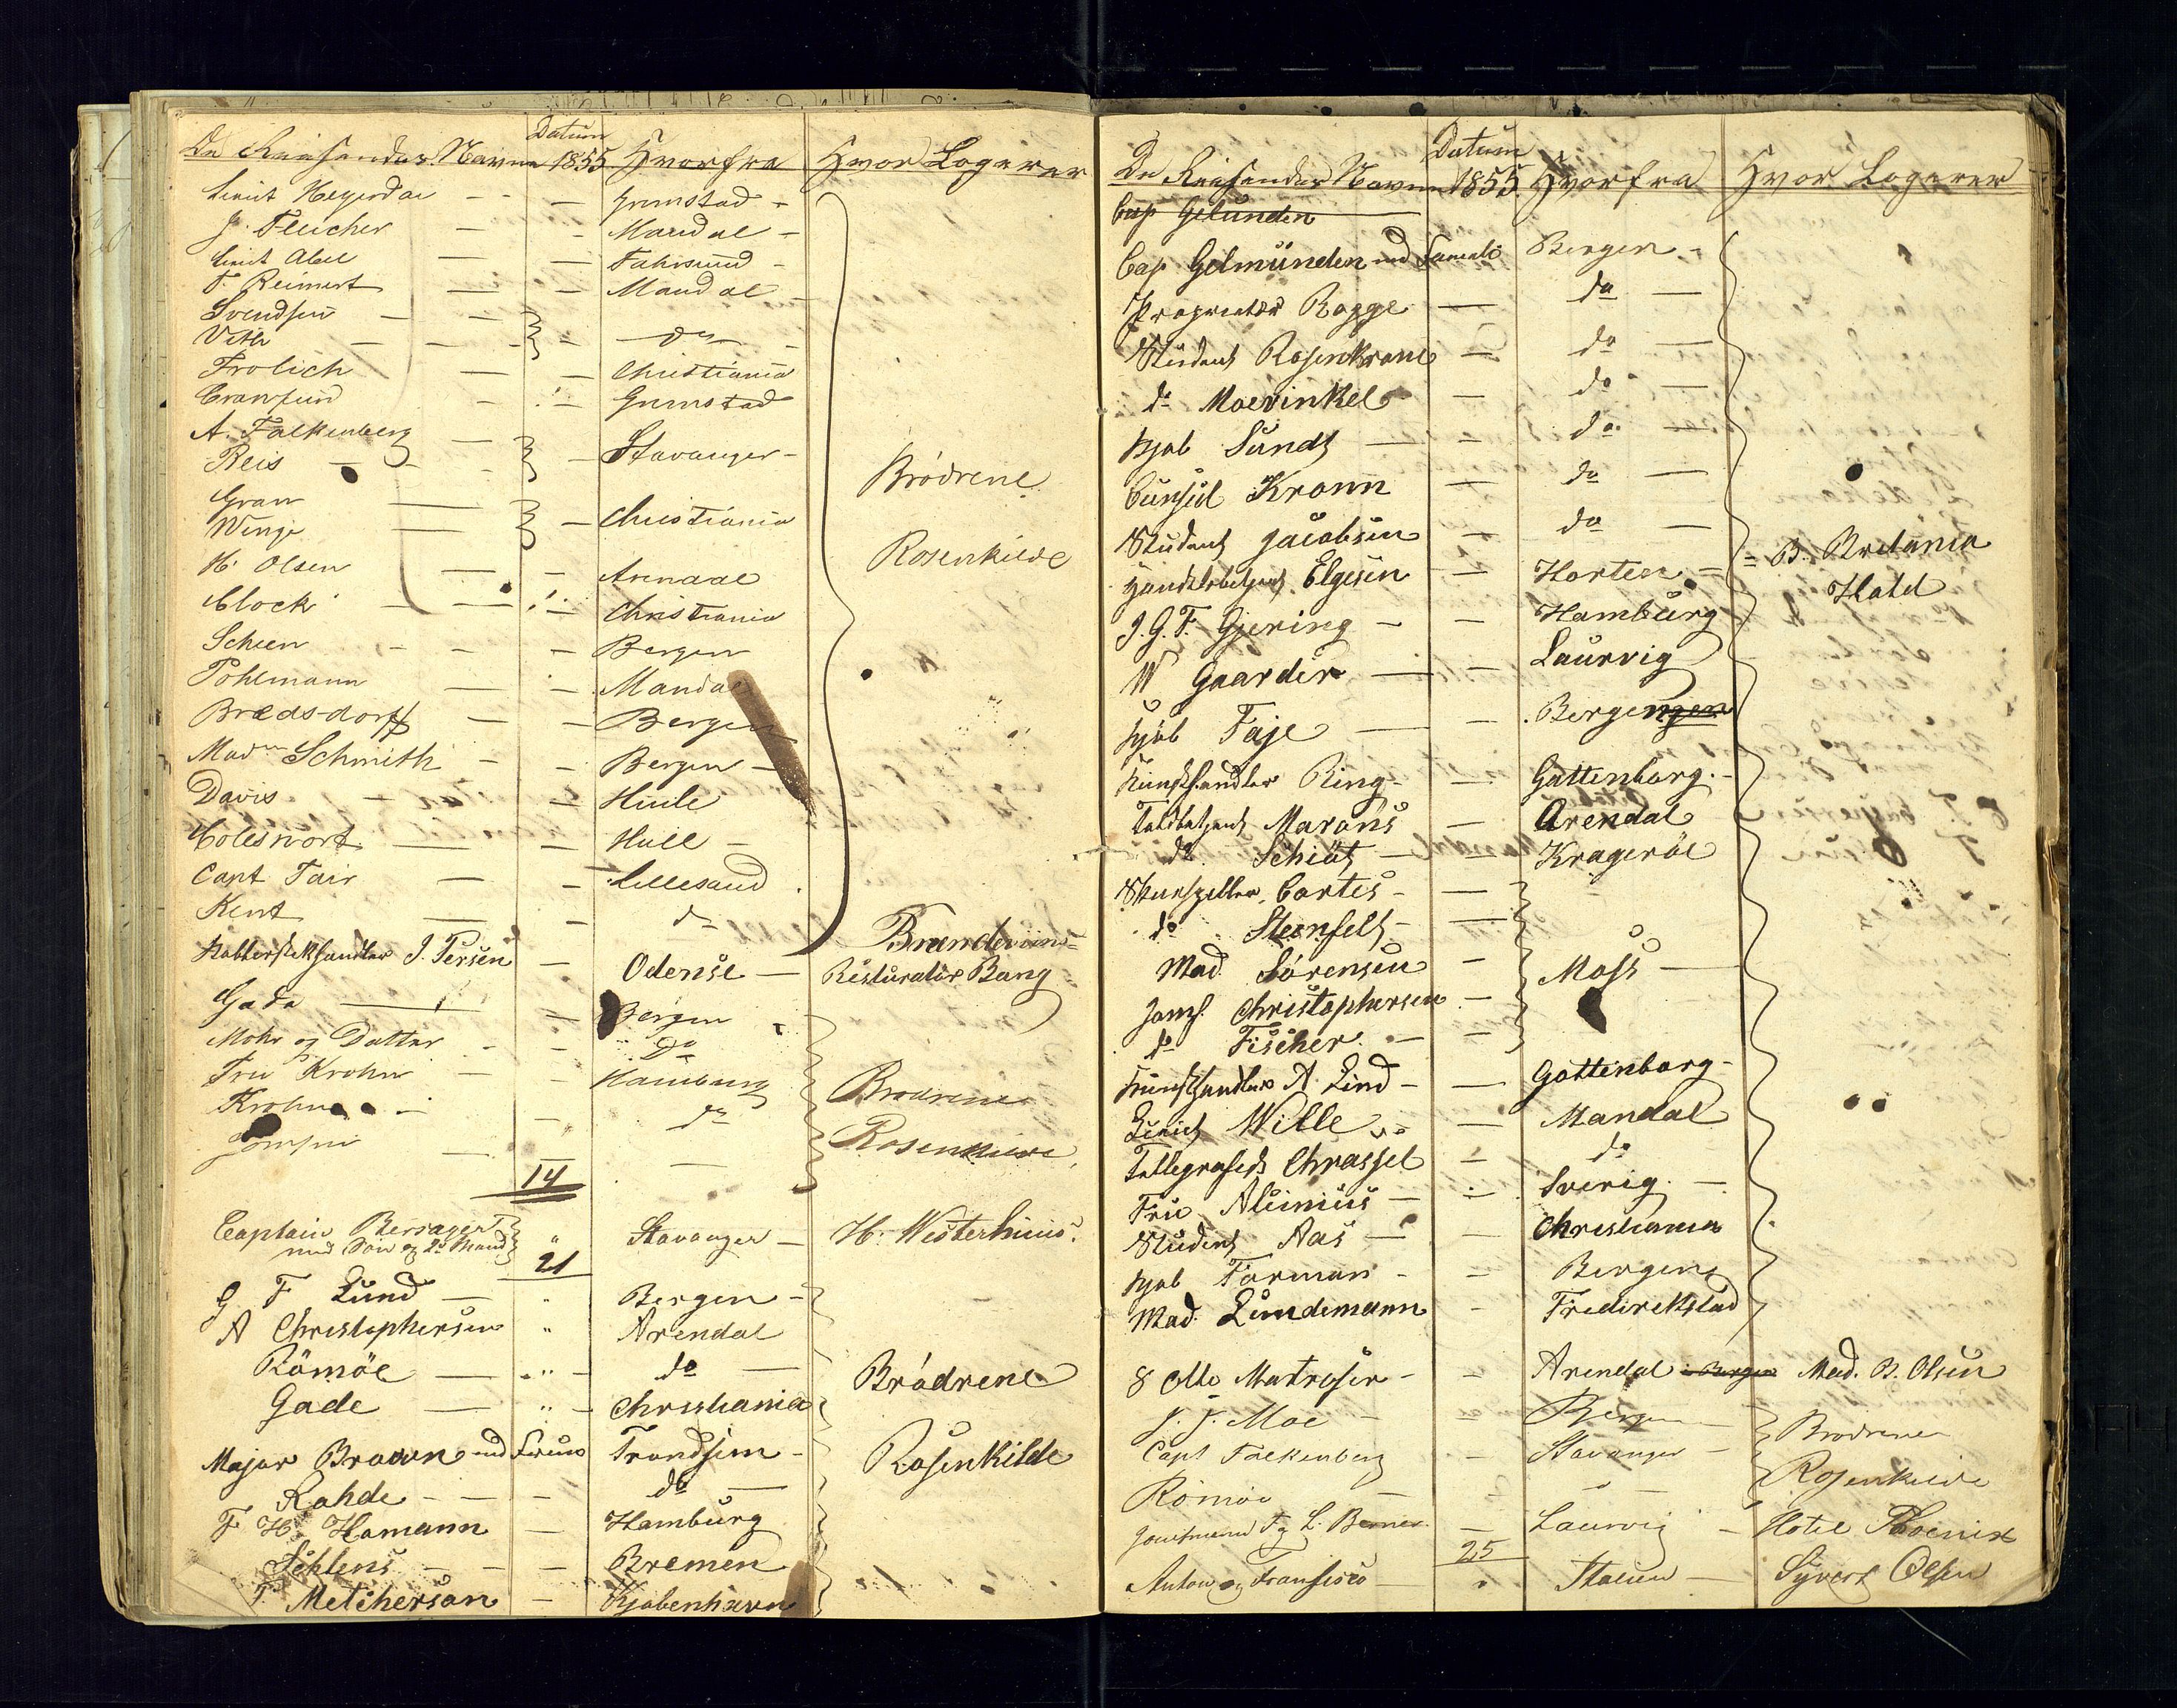 De Reisendes Navne Datum 1855 Hvorfra Hvor Logerer
Leiut Hegerdae Grimstad
J. Fleicher Mandal
Leiut Abel Fahrsund
F. Reimert Mandal
Svendsen
Veth do
Frolich Christiania
Cranfurd Grimstad
A. Falkenberg
Reis Stavanger
Brødrene
Gran
Winge Christiania
Rosenkilde
H. Olsen Arendal
Clock Christiania
Scheen Bergen
Pohlmann Mandal
Brædsdorff Bergen
Madm Schmith Bergen
Davis Hule
Colesvort Hull
Capt Tair Lillesand
Kent do
Brandeviins
J. Persen Odense Resturatør Bang
Gade Bergen
Mohr og Datter Do
Fru Krohn Hamburg
Brødrene
Krohn do
Rosenkilde
Jomfru
14
Captain Bersagel
med Søn og 2 Mand Stavanger H. Westerhuus
21
G F Lund Bergen
A Christophersen Arendal
Römöe do
Brödrene
Gade Christiania
Major Braavn med Fruu Trondjem
Rosenkilde
Rohde do
F H. Homann Hamburg
Sehlens Bremen
F. Metchersån Kjøbenhavn
De Reisendes Navne Datum 1855. Hvorfra Hvor Logerer
Cap Gelünden
Cap Gelmünden med Famelie Bergen
Proprietær Rogge do
Student Rosenkrane do
do Moevinkel do
Kjøb Sundt do
Cunsul Kronn do
Student Jacobsen do
B. Bretania
Elgesen Horten
Hotel
J. G. F. Gjering Hamburg
W Gaarder Laurvig
Kjøb Faje Bergengen
Kunsthandler Ring Gottenborg
Toldbetjent Marons Arendal
do Schiøtz Kragerøe
Skuespiller Cortes
do Steenfelt
Mad. Sörensen Moss
Jomf. Christophersen
do Fischer
Kunsthandler A. Lind Gottenborg
Leiut Wille Mandal
Tellegrafist Chrassel do
Fru Aluinius Sverig
Student Aas Christiania
Kjøb Forman Bergen
Mad. Lundemann Frederekstad
8 Otte Matroser Arendal Bergen Mad. B. Olsen
J. J. Moe Bergen
Brødrene
Capt Falkenberg Stavanger
Rosenkilde
Römöe
F og L. Berner Laurvig Hotel Phoenix
25
Anton og Fransisco Italien Syvert Olsen